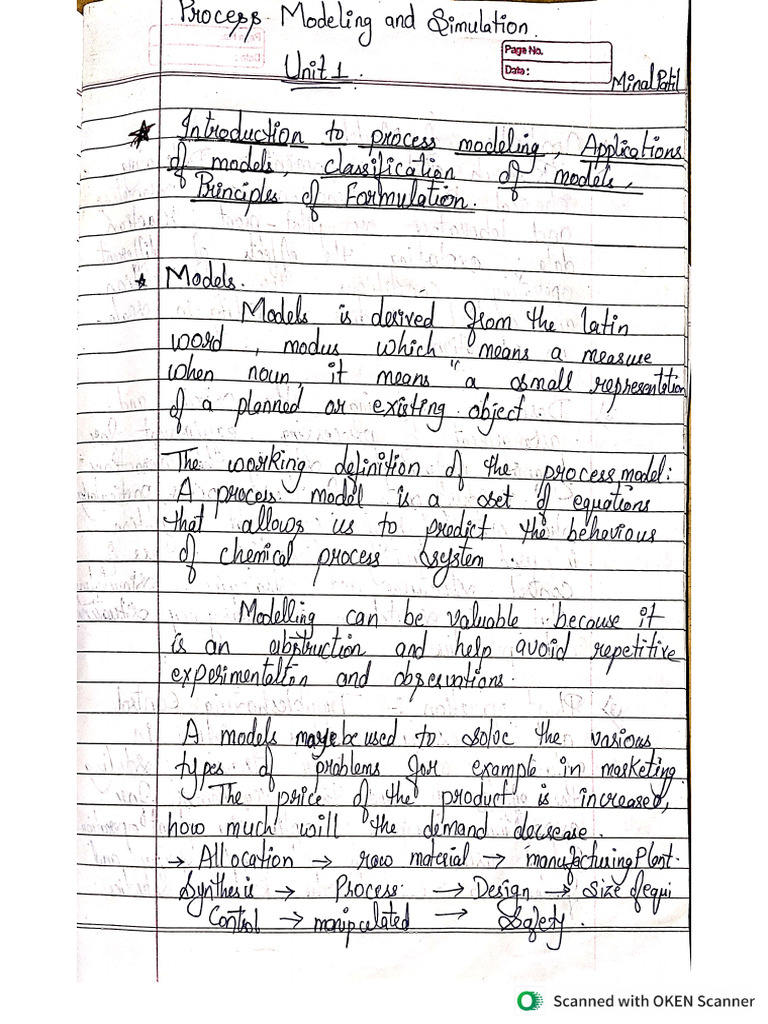 Process Modeling and Simulation.
Unit 1.
Page No.
Date:
Minal Patil
Introduction to process modeling, Applications
of models, classification of models,
Principles of Formulation.
Models.
Models is derived from the latin
word, modus which means a measure
when noun, it means "a small representation
of a planned or existing object.
The working definition of the process model:
A process model is a set of equations
that allows us to predict the behavious
of chemical process system.
Modelling can be valuable because it
is an abstruction and help avoid repetitive
experimentation and observations.
A models may be used to solve the various
types of problems for example in marketing.
The price of the product is increased,
how much will the demand decrease.
→ Allocation → raw material → manufacturing Plant.
Synthesis → Process → Design → Size of equi
Control → manipulated → Safety.
Scanned with OKEN Scanner